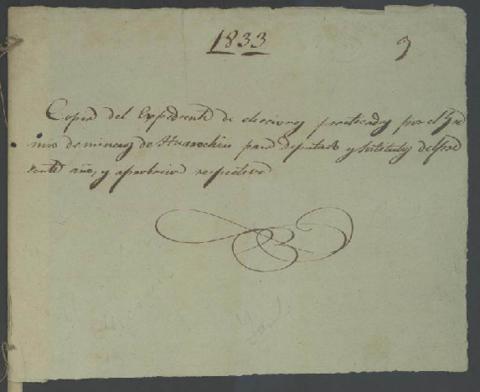 1833
9
Copia del Expediente de elecciones practicadas por el Gre
mio de mineros de Huarochiri para Diputado y Sostitutos del pre
sente año, y aprobacion respectiva